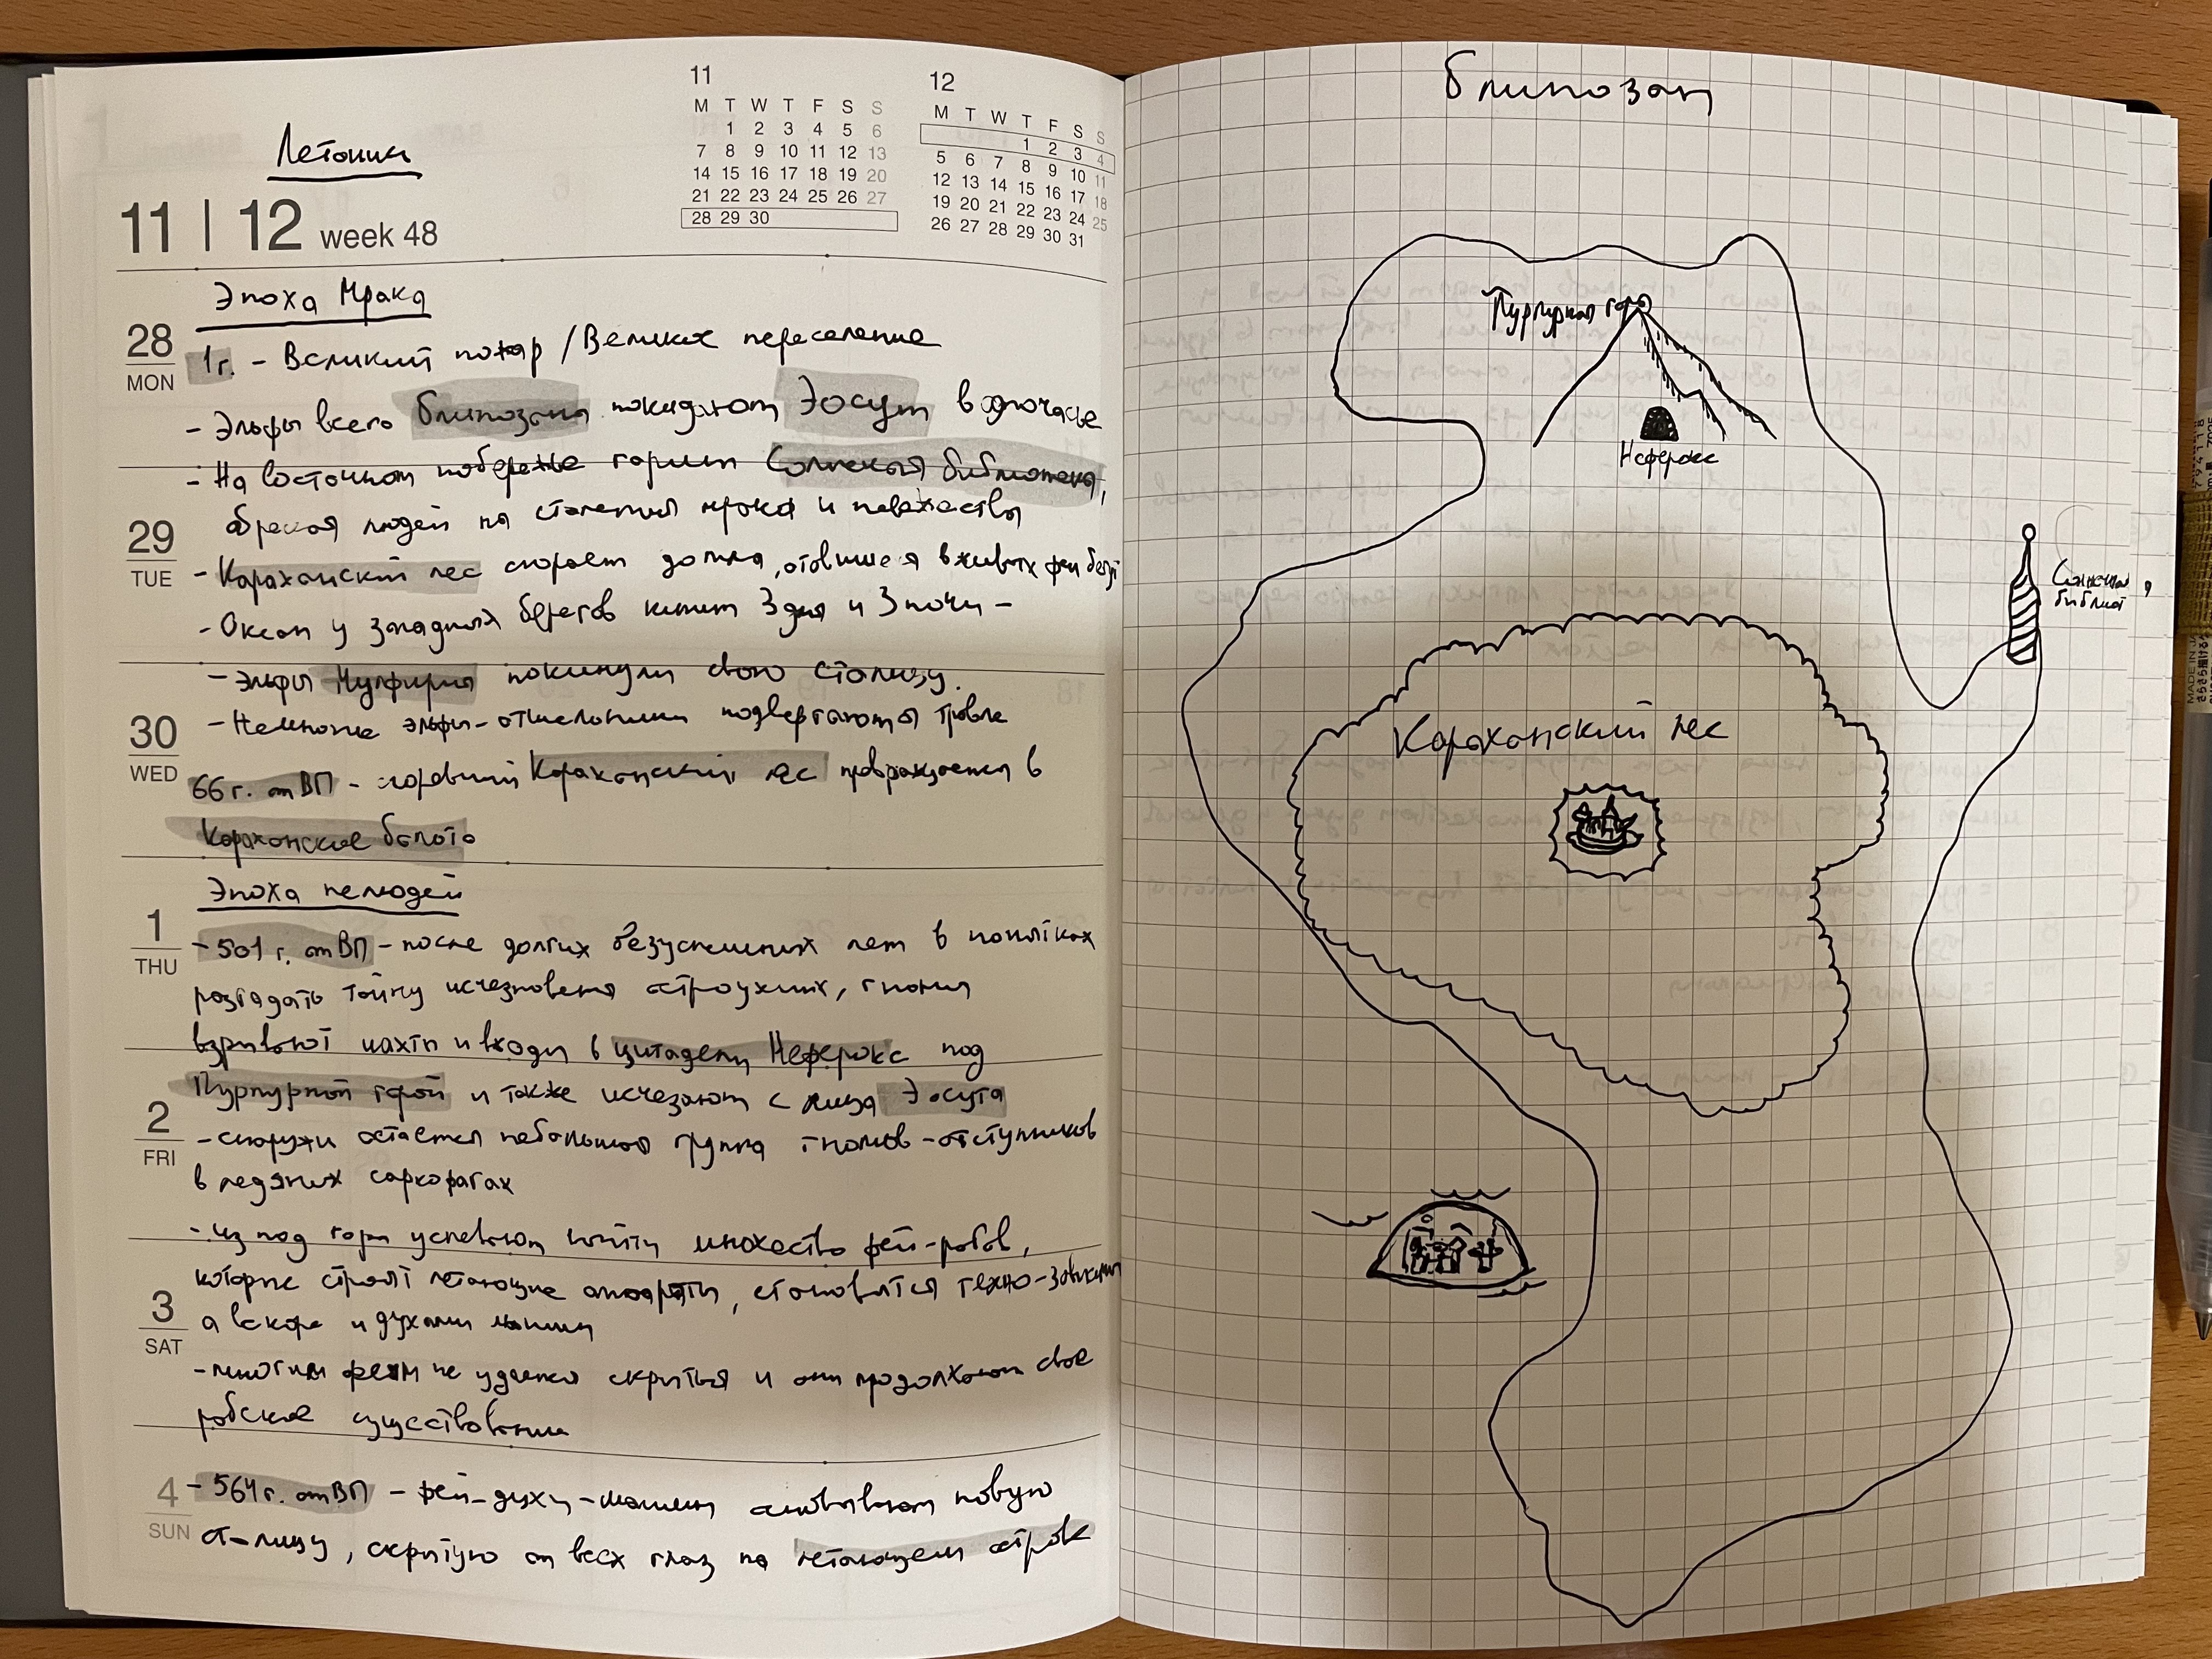 Летопись
11 | 12 week 48
11
M T W T F S S
1 2 3 4 5 6
7 8 9 10 11 12 13
14 15 16 17 18 19 20
21 22 23 24 25 26 27
28 29 30
12
M T W T F S S
1 2 3 4
5 6 7 8 9 10 11
12 13 14 15 16 17 18
19 20 21 22 23 24 25
26 27 28 29 30 31
Эпоха Мрака
28
MON
1г. - Великий пожар / Великое переселение
- Эльфы всего покидают Эосут в одночасье
- На восточном побережье горит Солнечная библиотека,
обрекая людей на столетия мрака и невежества
29
TUE
- Караханский лес сгорает дотла, оставшиеся в живых феи
- Океан у западных берегов кипит 3 дня и 3 ночи -
- эльфы покинули свою столицу.
30
WED
- Немногие эльфы-отшельники подвергаются травле
66 г. от ВП - сгоревший Караханский лес превращается в
Караханские болота
Эпоха нелюдей
1
THU
- 501 г. от ВП - после долгих безуспешных лет в попытках
разгадать тайну исчезновения остроухих, гномы
взрывают шахты и входы в цитадель Неферокс под
2
FRI
Пурпурной горой и также исчезают с лица Эосута
- снаружи остается небольшая группа гномов-отступников
в ледяных саркофагах
- из под горы успевают множество фей-рабов,
3
SAT
которые строят летающие аппараты, становятся техно-
а вскоре и духами машин
- многим феям не удается скрыться и они продолжают свое
рабское существование
4
SUN
- 564 г. от ВП - феи-духи-машины новую
столицу, скрытую от всех глаз на летающем острове
Пурпурная гора
Неферокс
Солнечная
библиот
Караханский лес